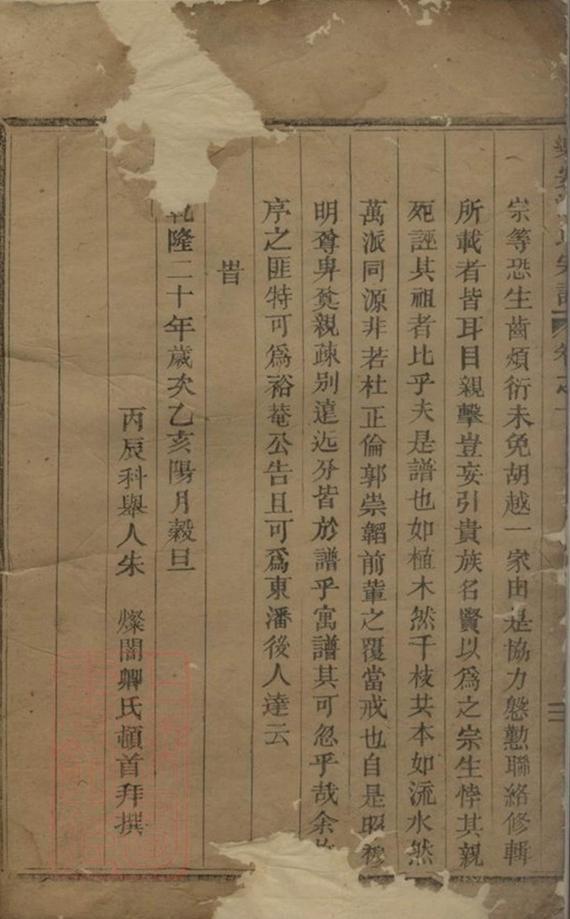 宗等恐生齒煩衍未免胡越一家由是協力慇懃聯絡修輯
所載者皆耳目親擊豈妄引貴族名賢以爲之宗生悖其親
死誣其祖者比乎夫是譜也如植木然千枝共本如流水然
萬派同源非若杜正倫郭崇韜前輩之覆當戒也自是昭穆
明尊卑奠親疎別遠近分皆於譜乎寓譜其可忽乎哉余
序之匪特可爲裕菴公告且可爲東潘後人達云
旹
乾隆二十年歲次乙亥陽月穀旦
丙辰科舉人朱 燦闇卿氏頓首拜撰